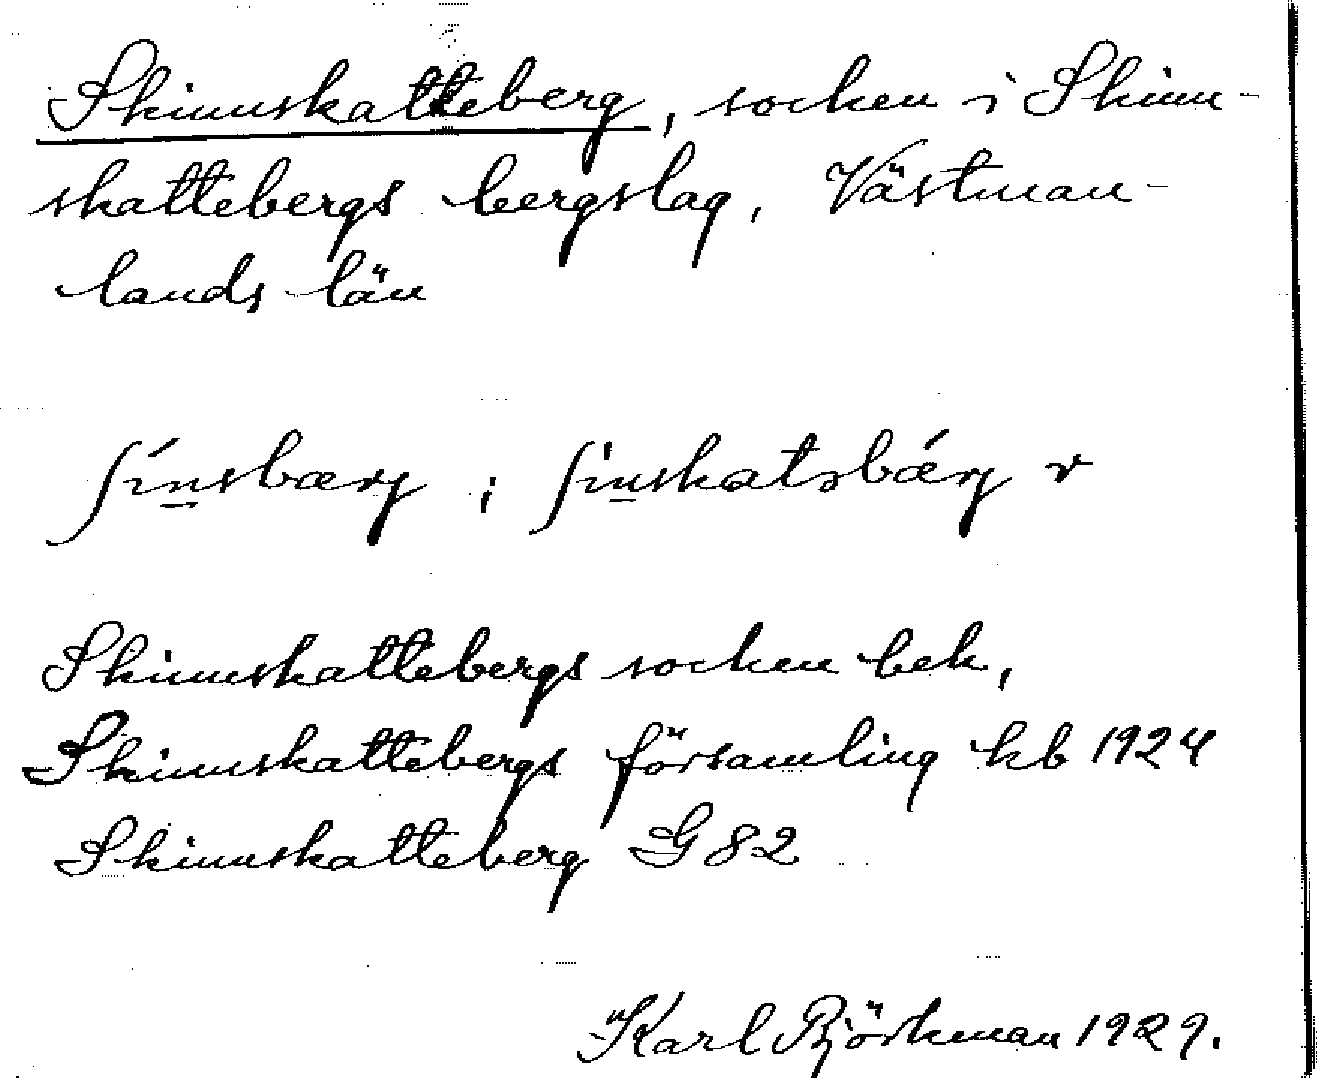 Skinnskatteberg, socken i Skinn-
skattebergs bergslag, Västman-
lands län
ʃínsbærj ; ʃinskatsbǽrj r
Skinnskattebergs socken bek,
Skinnskattebergs församling kb 1924
Skinnskatteberg G82
Karl Björkman 1929.